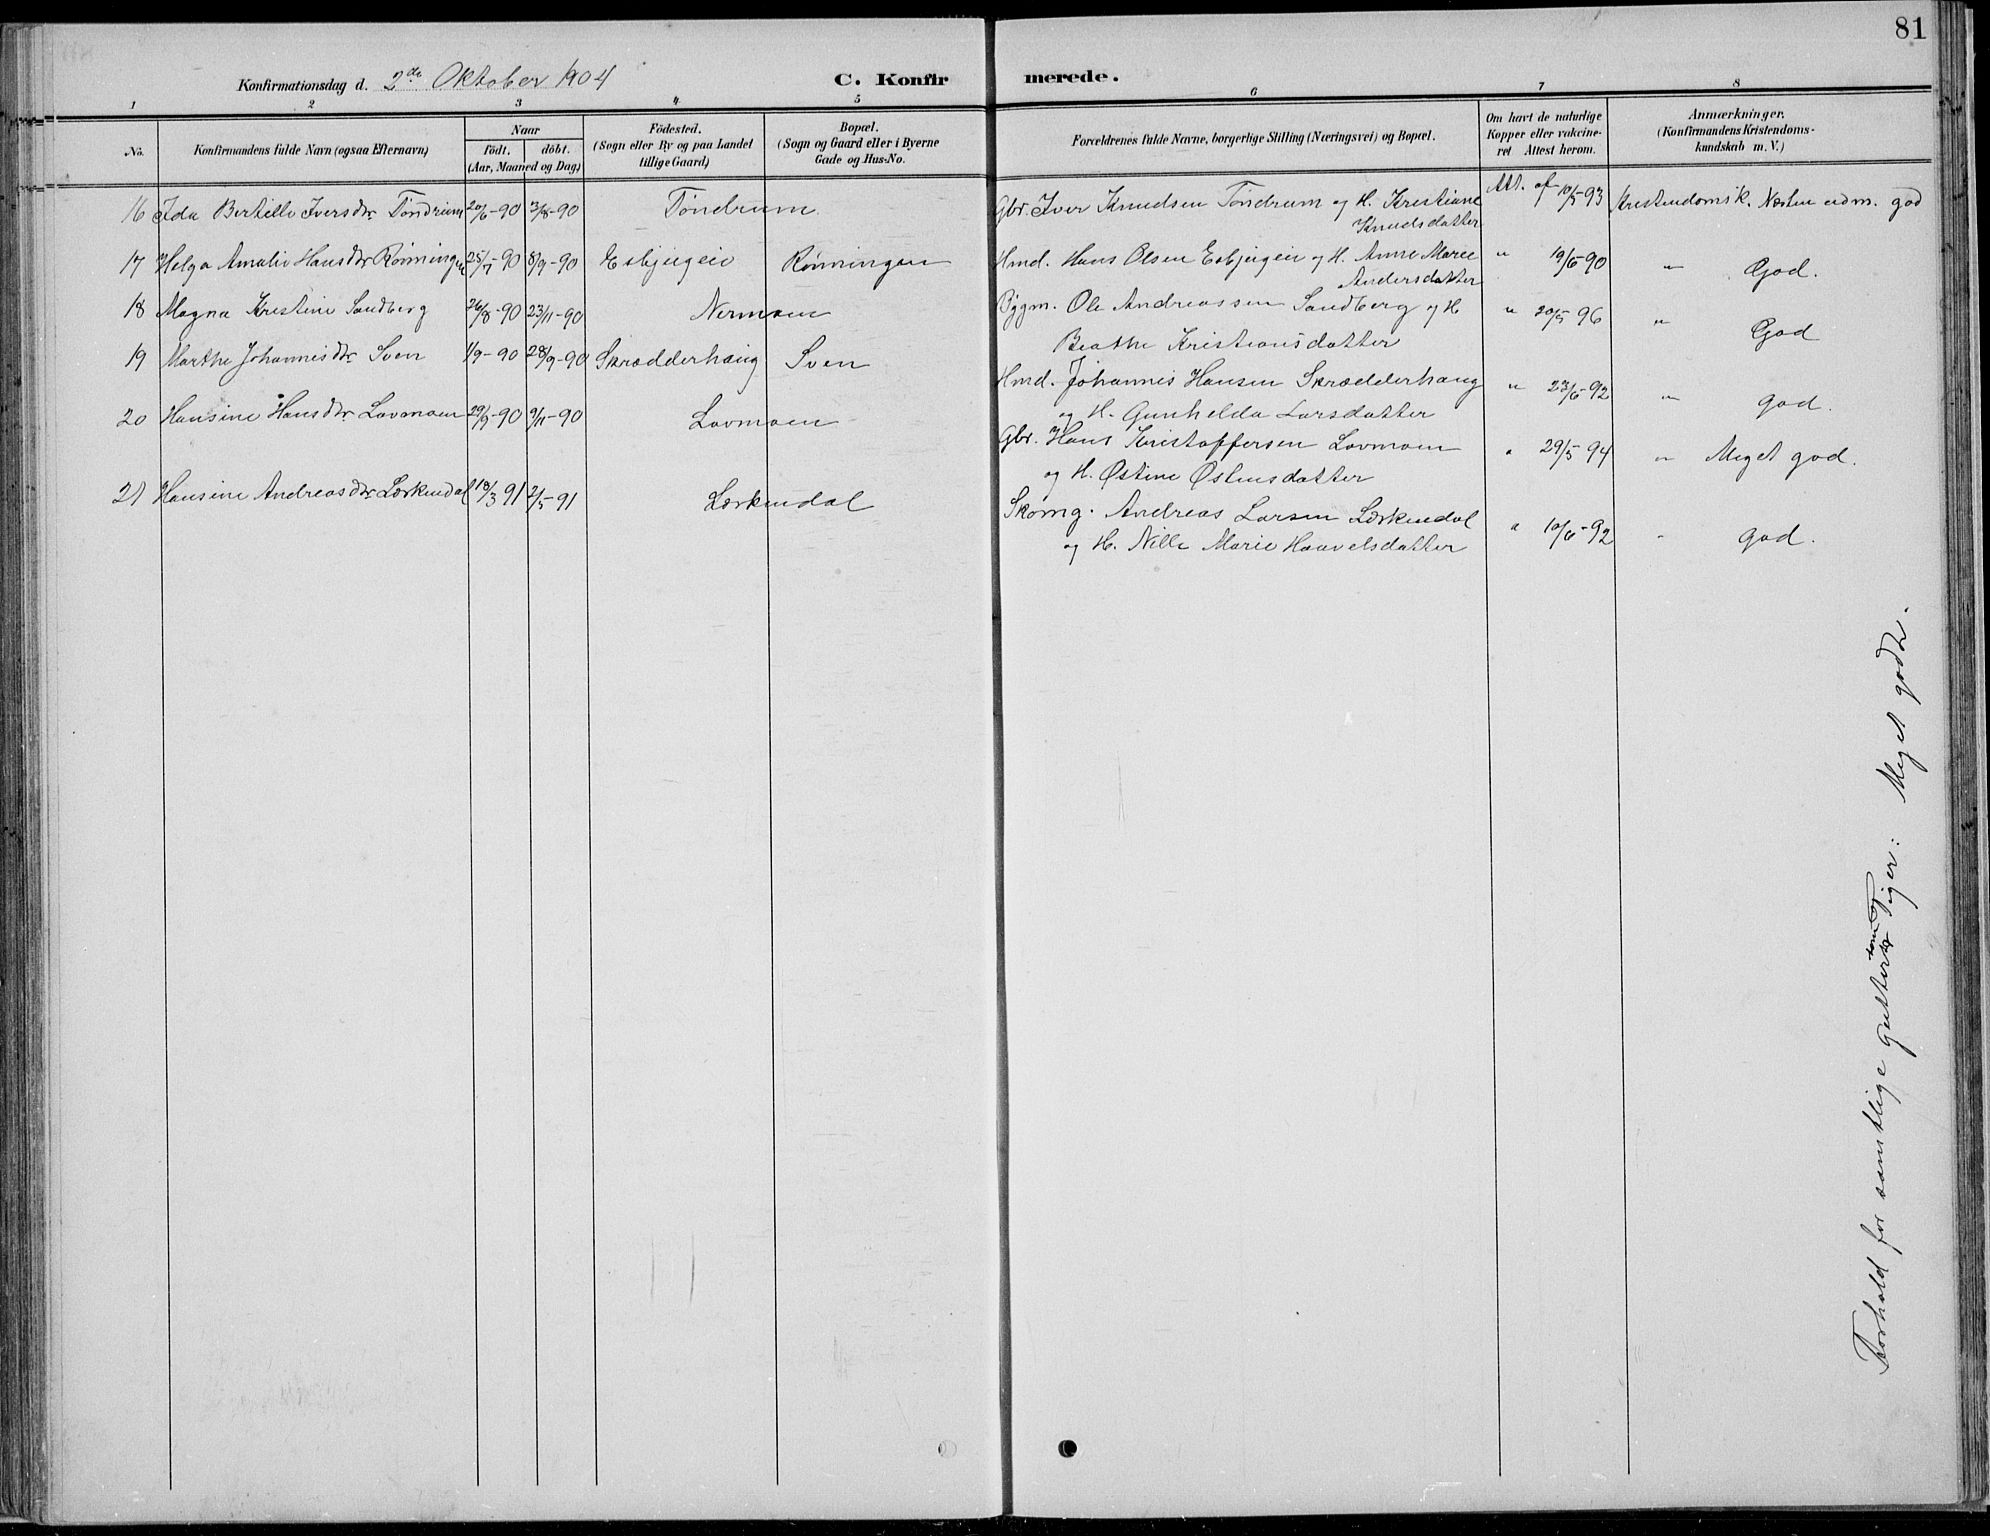 81
Konfirmationsdag d. 2de Oktober 1904 C. Konfirmerede.
1 2 3 4 5 6 7 8
No.
Konfirmandens fulde Navn (ogsaa Efternavn)
Naar
födt. döbt.
(Aar, Maaned og Dag)
Födested.
(Sogn eller By og paa Landet
tillige Gaard)
Bopæl.
(Sogn og Gaard eller i Byerne
Gade og Hus-No.
Forældrenes fulde Navne, borgerlige Stilling (Næringsvei) og Bopæl.
Om havt de naturlige
Kopper eller vakcine-
ret Attest herom.
Anmærkninger.
(Konfirmandens Kristendoms-
kundskab m. V.)
16 Ida Bertille Iversdtr. Töndrum 20/6-90 3/8-90 Töndrum Gbr. Iver Knudsen Töndrum og H. Kristiane Att. af 10/5-93 Kristendomsk. Næsten udm. god
Knudsdatter
17 Helga Amalie Hansdtr. Rønningen 25/7-90 8/9-90 Esbjugeie Rønningen Hmd. Hans Olsen Esbjugeie og H. Anne Marie " 19/6-90 " God.
Andersdatter
18 Magna Kristine Sandberg 26/8-90 23/11-90 Nermoen Bygm. Ole Andreassen Sandberg og H " 20/5 96 " God
Beathe Kristiansdatter
19 Marthe Johannisdtr. Sven 1/9-90 28/9-90 Skrædderhaug Sven Hmd. Johannis Hansen Skrædderhaug " 23/6-92 " god.
og H. Gunhelda Larsdatter
20 Hansine Hansdtr. Lovmoen 29/9-90 9/11-90 Lovmoen Gbr. Hans Kristoffersen Lovmoen " 29/5 94 " Meget god.
og H. Østine Østensdatter
21 Hansine Andreasdtr. Lærkendal 18/3 91 2/5-91 Lærkendal Skomg. Andreas Larsen Lærkendal " 10/6-92 " god.
og H. Nille Marie Haavelsdatter
Forhold for samtlige Gutter som Piger: Meget godt.